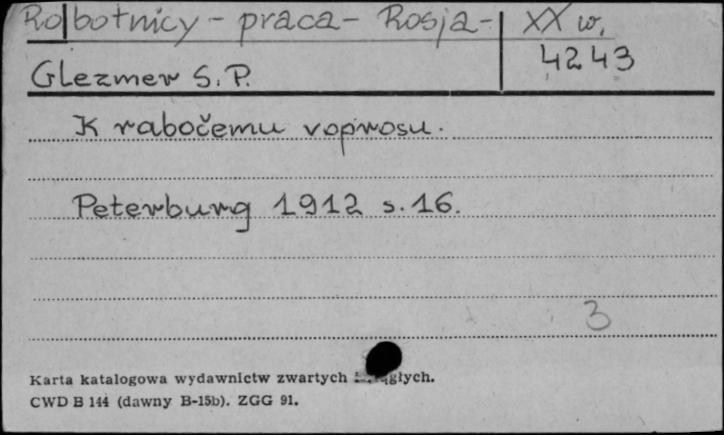 Robotnicy - praca - Rosja - XX w.
4243
Glezmer S. P.
K rabočemu voprosu.
Peterburg 1912 s. 16.
3
Karta katalogowa wydawnictw zwartych
CWD B 144 (dawny B-15b). ZGG 91.